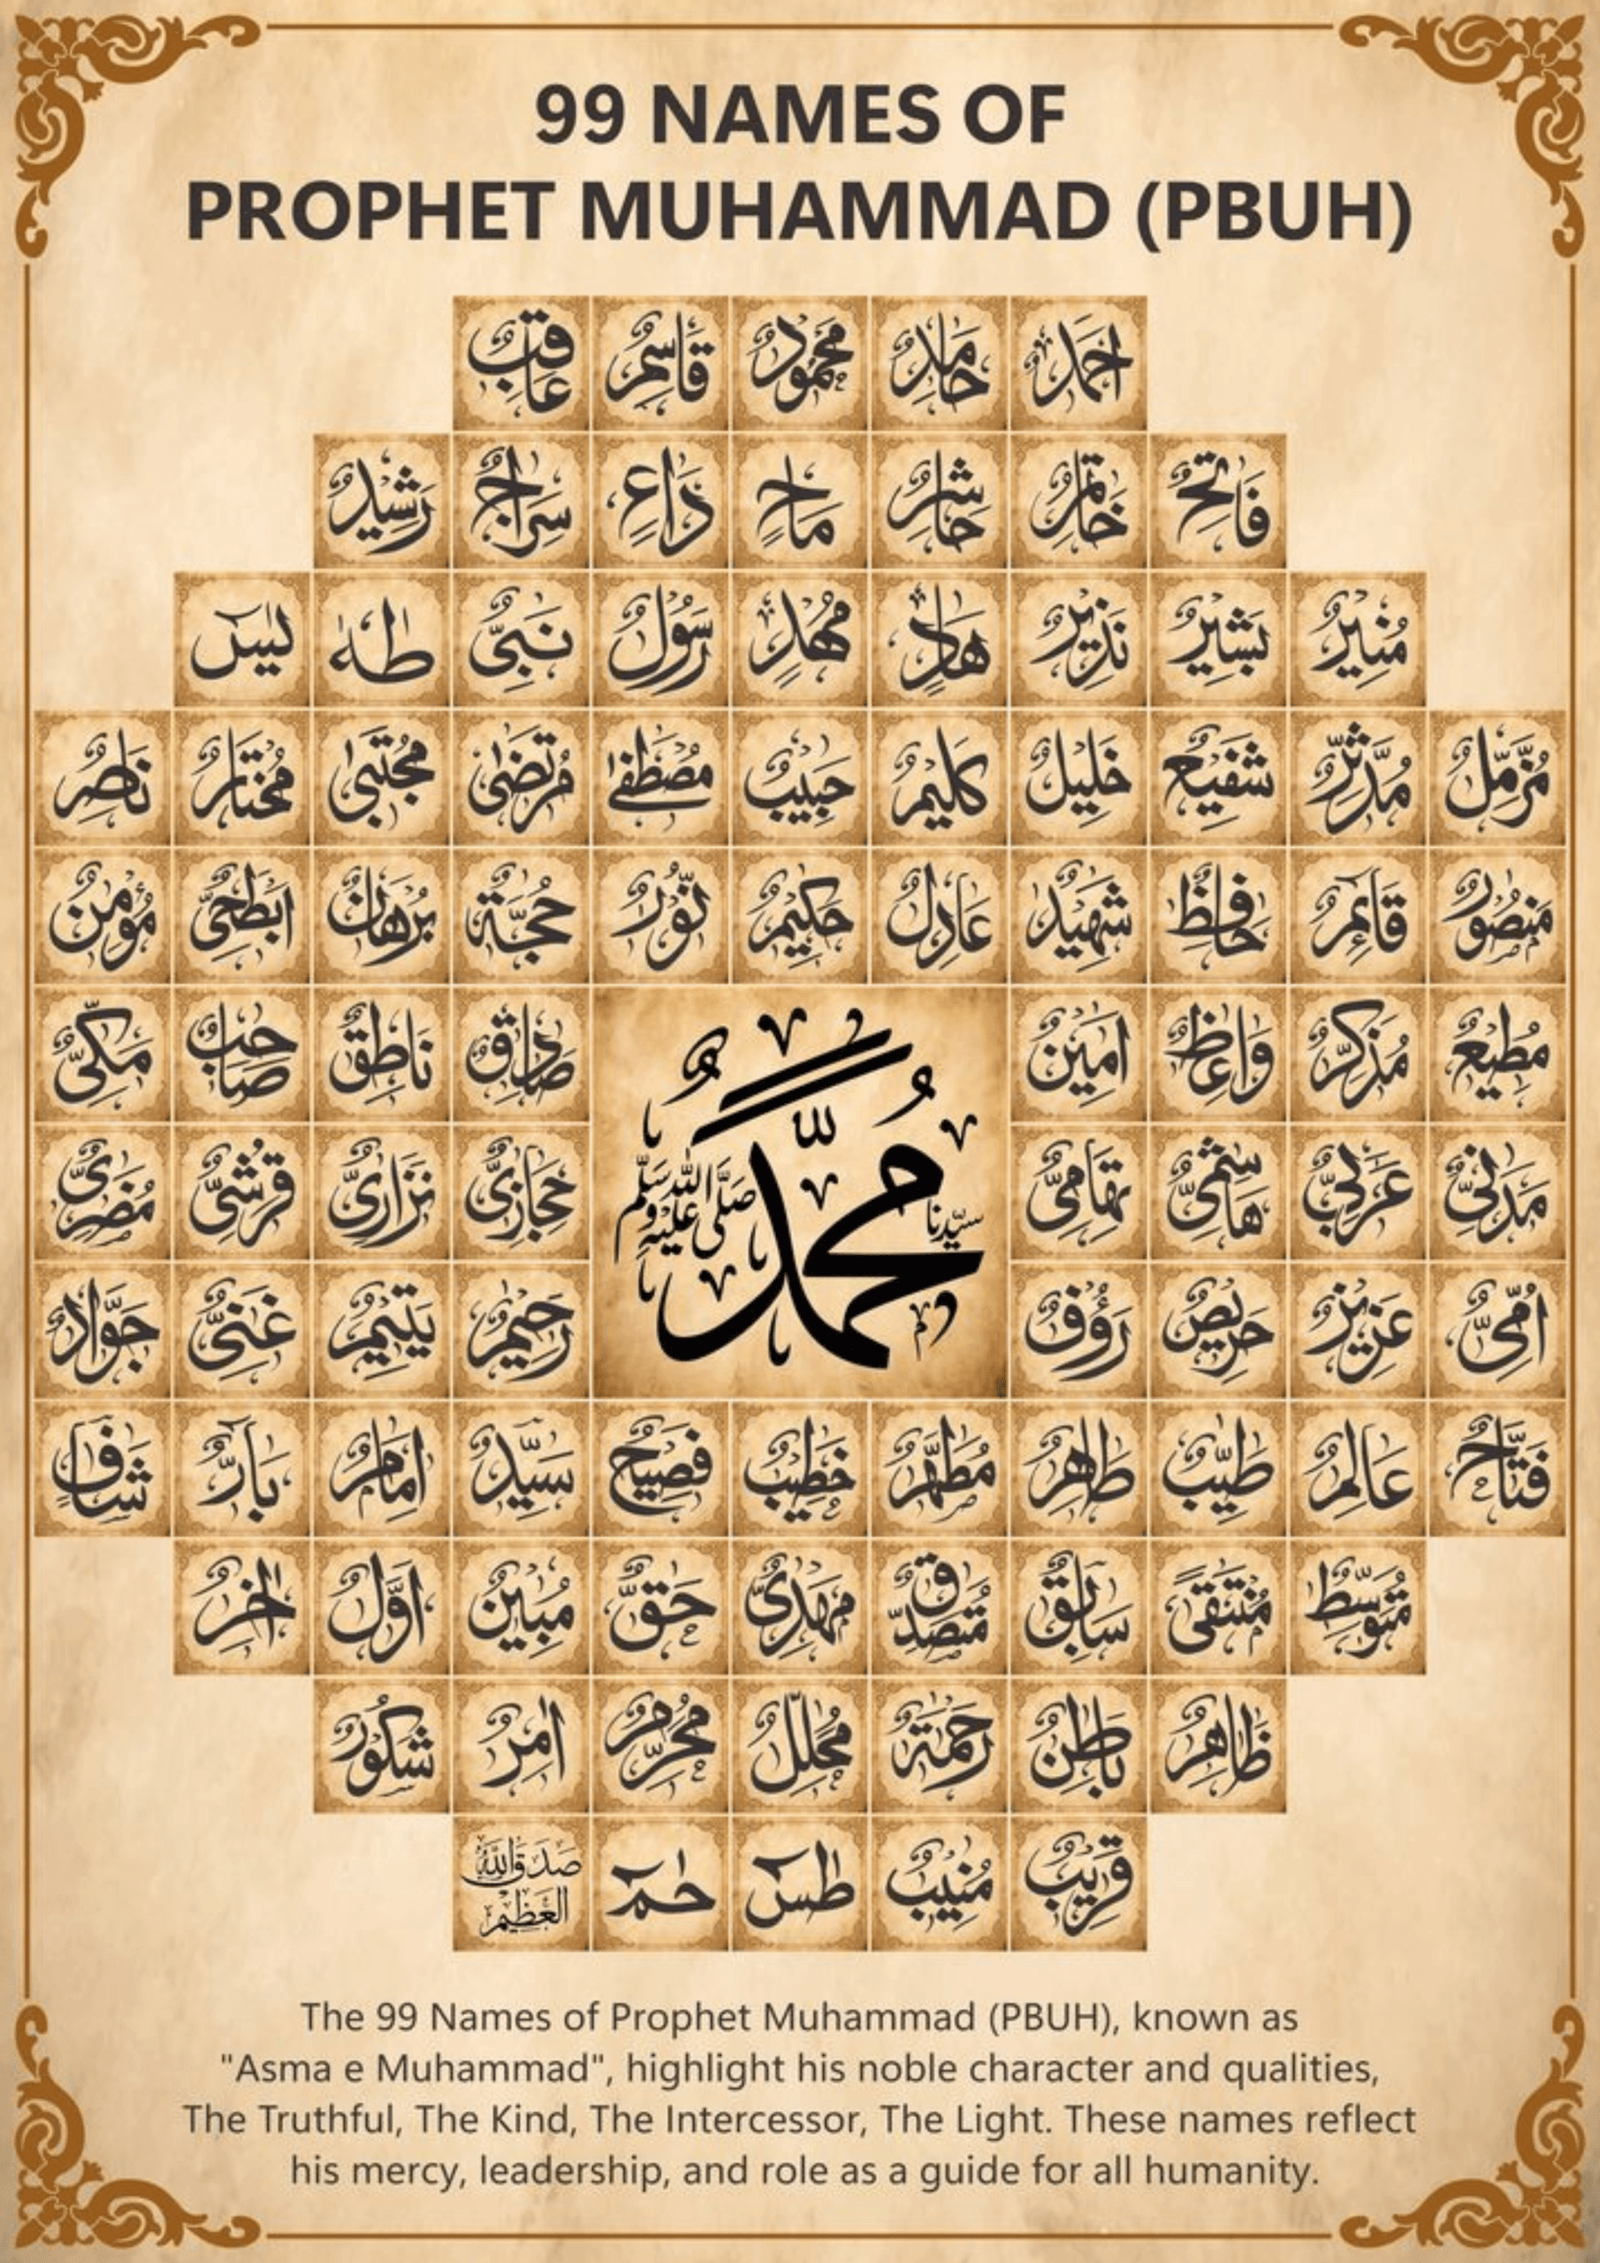 99 NAMES OF
PROPHET MUHAMMAD (PBUH)
اَحْمَدُ حَامِدٌ مَحْمُوْدٌ قَاسِمٌ عَاقِبٌ
فَاتِحٌ خَاتَمٌ حَاشِرٌ مَاحٍ دَاعٍ سِرَاجٌ رَشِيْدٌ
مُنِيْرٌ بَشِيْرٌ نَذِيْرٌ هَادٍ مُهْدٍ رَسُوْلٌ نَبِيٌّ طٰهٰ يٰسٓ
مُزَّمِّلٌ مُدَّثِّرٌ شَفِيْعٌ خَلِيْلٌ كَلِيْمٌ حَبِيْبٌ مُصْطَفٰے مُرْتَضٰى مُجْتَبٰى مُخْتَارٌ نَاصِرٌ
مَنْصُوْرٌ قَائِمٌ حَافِظٌ شَهِيْدٌ عَادِلٌ حَكِيْمٌ نُوْرٌ حُجَّةٌ بُرْهَانٌ اَبْطَحِيٌّ مُؤْمِنٌ
مُطِيْعٌ مُذَكِّرٌ وَاعِظٌ اَمِيْنٌ صَادِقٌ نَاطِقٌ صَاحِبٌ مَكِّيٌّ
سَيِّدُنَا مُحَمَّدٌ صَلَّى اللّٰهُ عَلَيْهِ وَسَلَّمَ
مَدَنِيٌّ عَرَبِيٌّ هَاشِمِيٌّ تِهَامِيٌّ حِجَازِيٌّ نِزَارِيٌّ قُرَشِيٌّ مُضَرِيٌّ
اُمِّيٌّ عَزِيْزٌ حَرِيْصٌ رَؤُوْفٌ رَحِيْمٌ يَتِيْمٌ غَنِيٌّ جَوَّادٌ
فَتَّاحٌ عَالِمٌ طَيِّبٌ طَاهِرٌ مُطَهَّرٌ خَطِيْبٌ فَصِيْحٌ سَيِّدٌ اِمَامٌ بَارٌّ شَافٍ
مُتَوَسِّطٌ مُنْتَقًى سَابِقٌ مُتَصَدِّقٌ مَهْدِيٌّ حَقٌّ مُبِيْنٌ اَوَّلٌ اٰخِرٌ
ظَاهِرٌ بَاطِنٌ رَحْمَةٌ مُحَلِّلٌ مُحَرِّمٌ اٰمِرٌ شَكُوْرٌ
قَرِيْبٌ مُنِيْبٌ طٰسٓ حٰمٓ صَدَقَ اللّٰهُ الْعَظِيْمُ
The 99 Names of Prophet Muhammad (PBUH), known as
"Asma e Muhammad", highlight his noble character and qualities,
The Truthful, The Kind, The Intercessor, The Light. These names reflect
his mercy, leadership, and role as a guide for all humanity.